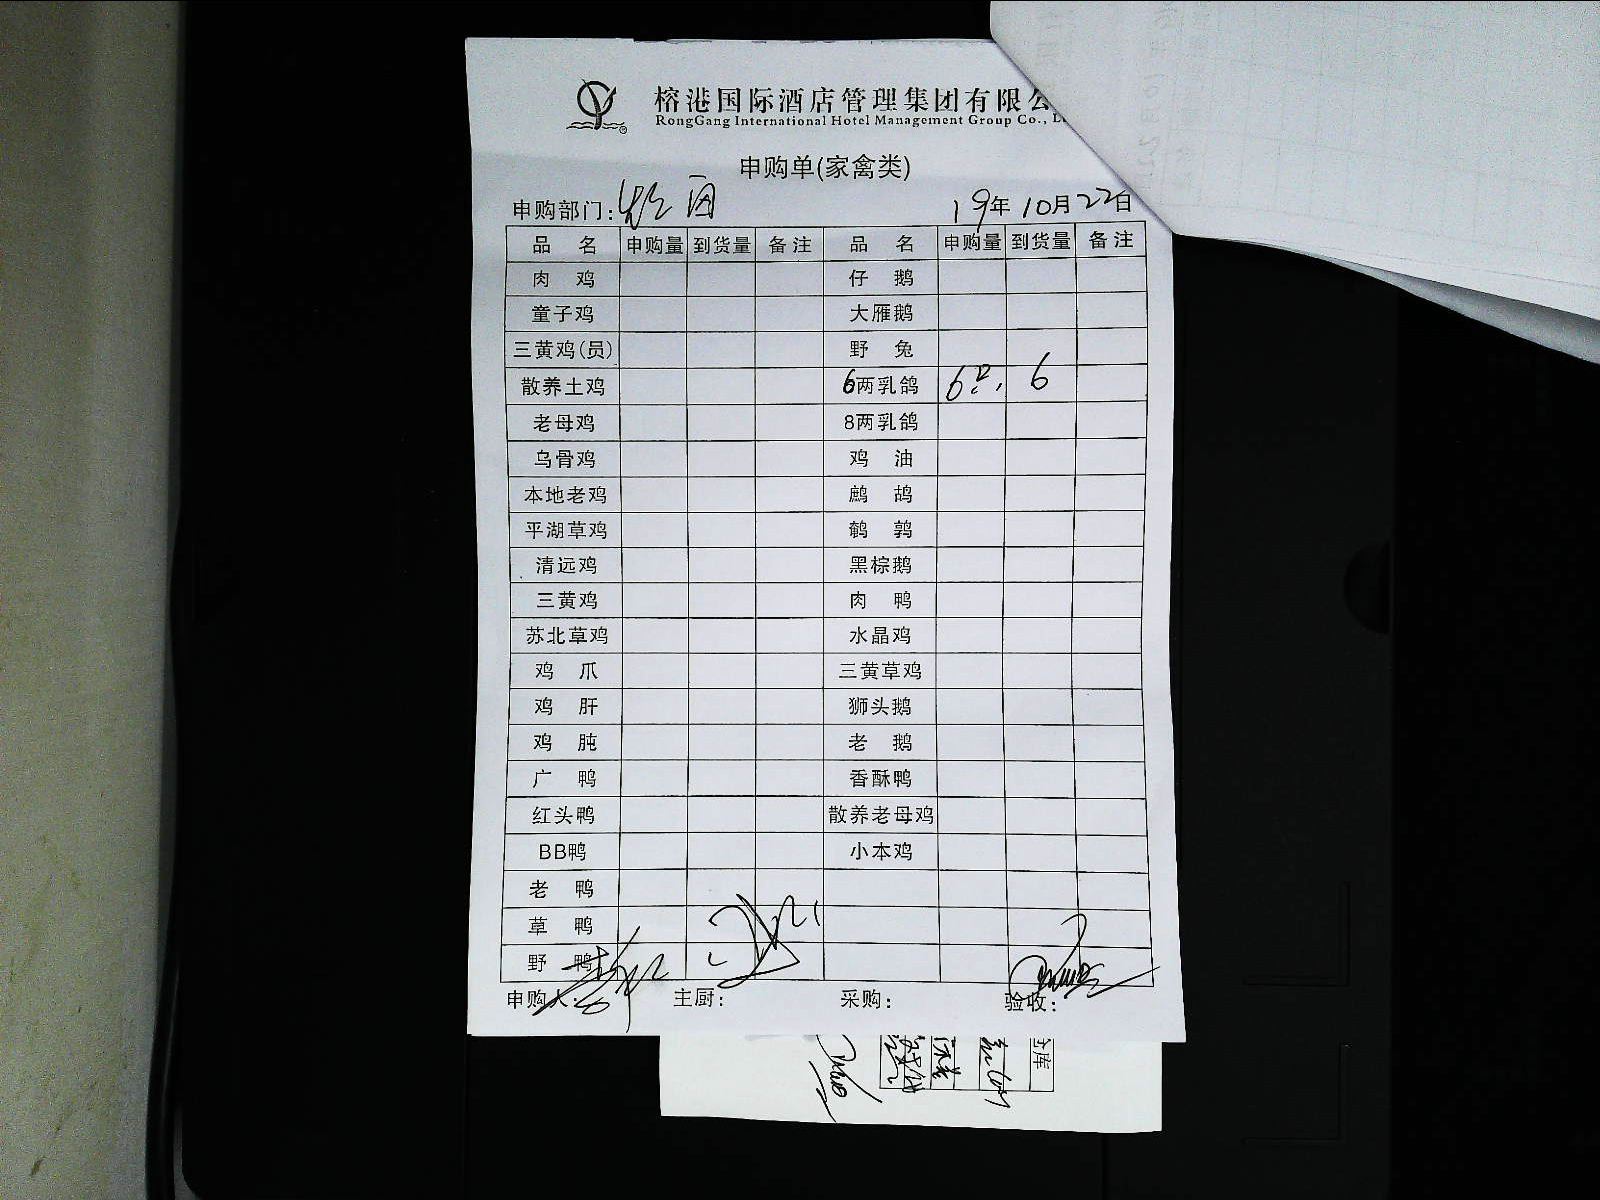 榕港国际酒店管理集团有限公
RongGang International Hotel Management Group Co., L
申购单(家禽类)
申购部门: 19年10月22日
品 名 申购量 到货量 备注 品 名 申购量 到货量 备注
肉 鸡 仔 鹅
童子鸡 大雁鹅
三黄鸡(员) 野 兔
散养土鸡 6两乳鸽 6只. 6
老母鸡 8两乳鸽
乌骨鸡 鸡 油
本地老鸡 鹧 鸪
平湖草鸡 鹌 鹑
清远鸡 黑棕鹅
三黄鸡 肉 鸭
苏北草鸡 水晶鸡
鸡 爪 三黄草鸡
鸡 肝 狮头鹅
鸡 肫 老 鹅
广 鸭 香酥鸭
红头鸭 散养老母鸡
BB鸭 小本鸡
老 鸭
草 鸭
野 鸭
申购人: 主厨: 采购: 验收:
仓库